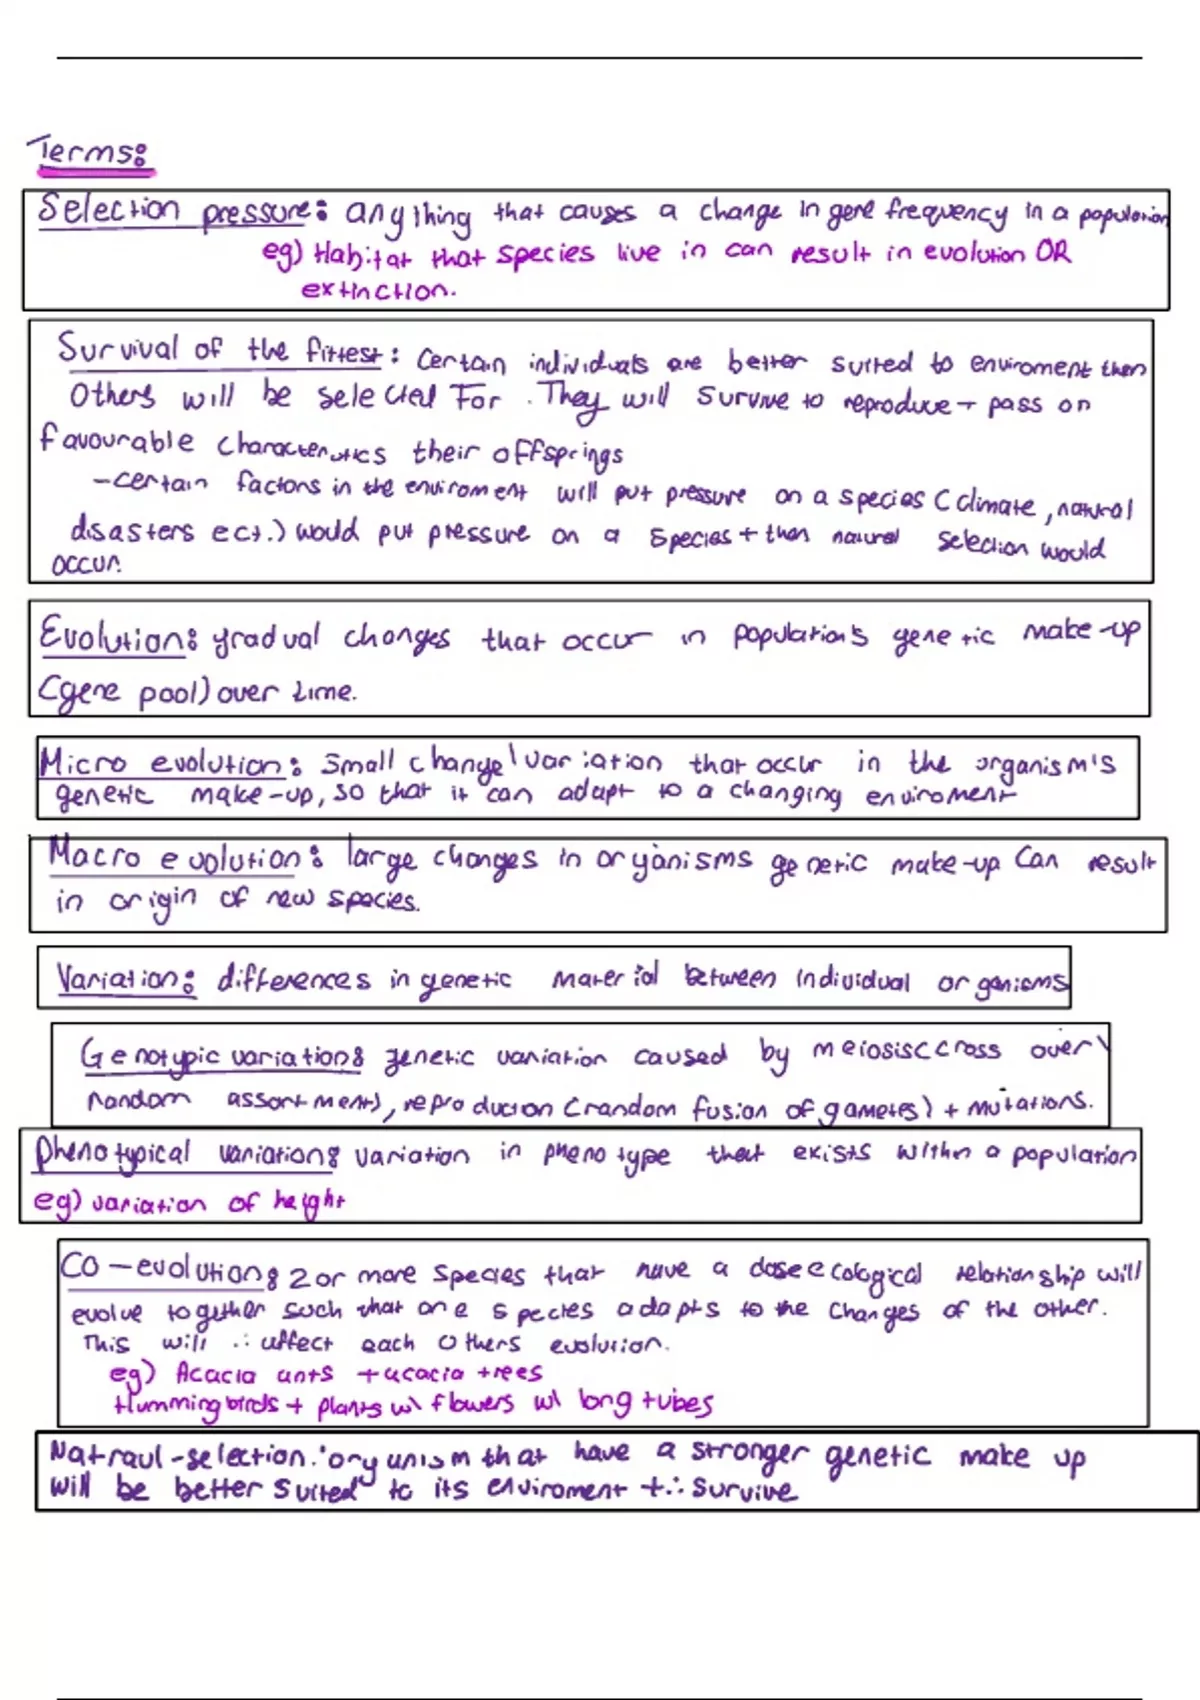 Terms:
Selection pressure: anything that causes a change in gene frequency in a population
eg) Habitat that species live in can result in evolution OR
extinction.
Survival of the fittest: Certain individuals are better suited to enviroment then
Others will be selected For. They will survive to reproduce + pass on
favourable characteristics their offsprings
-certain factors in the enviroment will put pressure on a species (climate, natural
disasters ect.) would put pressure on a species + then natural selection would
occur.
Evolution: gradual changes that occur in population's genetic make-up
(gene pool) over time.
Micro evolution: small change\variation that occur in the organism's
genetic make-up, so that it can adapt to a changing enviroment
Macro evolution: large changes in organisms genetic make-up can result
in origin of new species.
Variation: differences in genetic material between individual organisms
Genotypic variation: genetic variation caused by meiosis(cross over\
random assortment), reproduction (random fusion of gametes) + mutations.
Phenotypical variation: variation in phenotype that exists within a population
eg) variation of height
Co-evolution: 2 or more species that have a close ecological relationship will
evolve together such that one species adapts to the changes of the other.
This will ∴ affect each others evolution.
eg) Acacia ants + acacia trees
Hummingbirds + plants w\ flowers w\ long tubes
Natraul-selection: organism that have a stronger genetic make up
will be better suited to its enviroment + ∴ survive